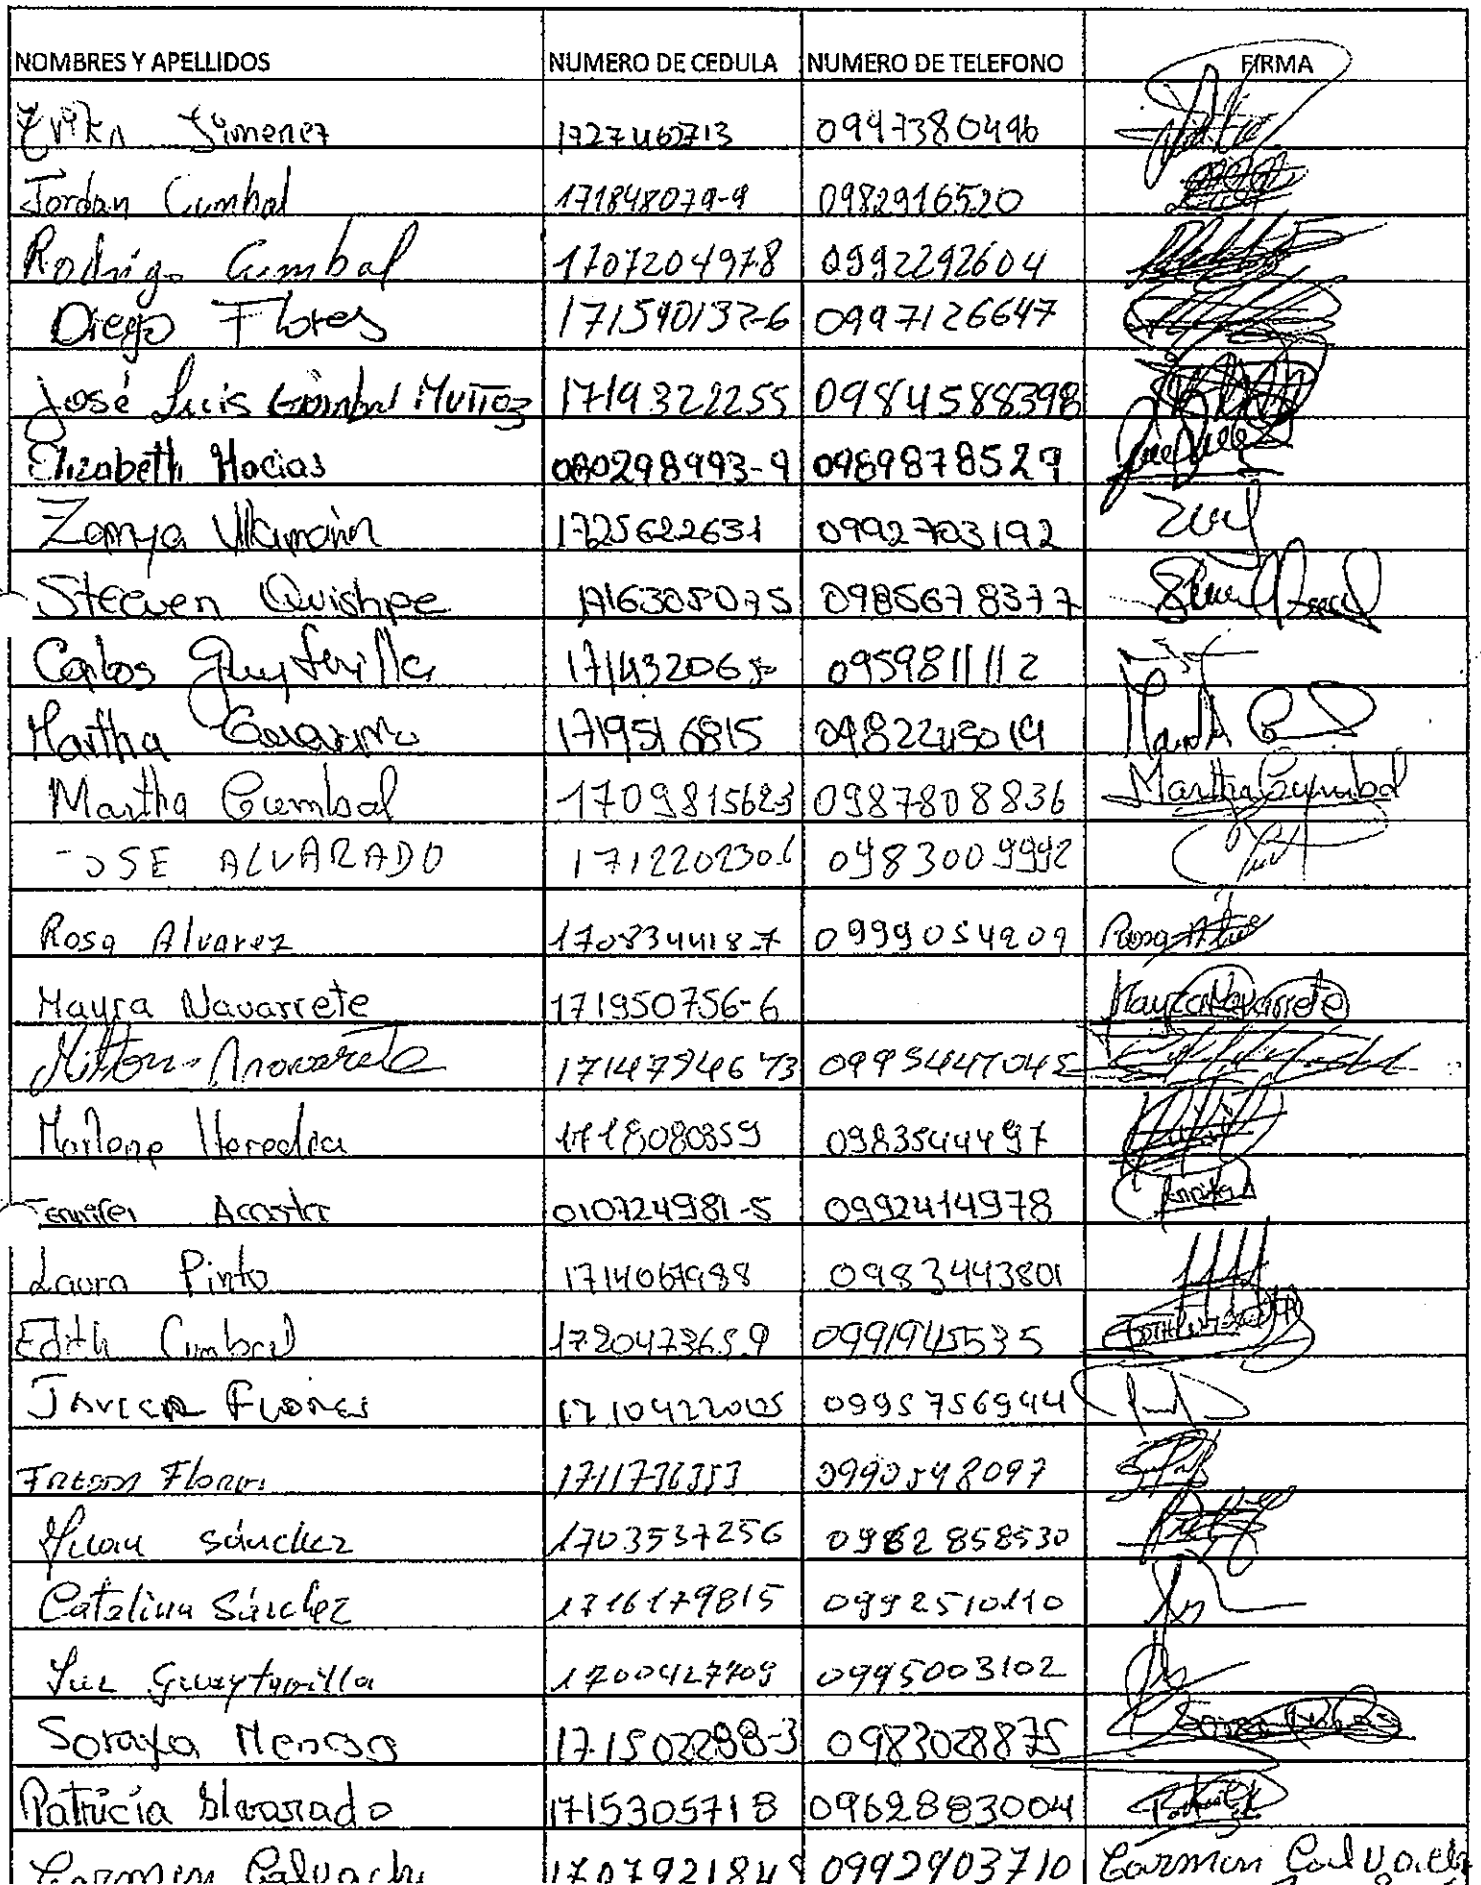 NOMBRES Y APELLIDOS NUMERO DE CEDULA NUMERO DE TELEFONO FIRMA
Erika Jimenez 1727462713 0997380496
Jordan Cumbal 171848079-9 0982916520
Rodrigo Cumbal 1707204978 0992292604
Diego Flores 171590132-6 0997126647
José Luis Muñoz 1719322255 0984588398
Elizabeth Macias 080298993-9 0969878529
Zamya 1725622631 0992703192
Steeven Quishpe 1716305075 0985678377
Carlos Guaytarilla 0959811112
Martha 1719516815
Martha Cumbal 1709815623 0987808836 Martha Cumbal
JOSE ALVARADO 1712202306 0983009992
Rosa Alvarez 170834418-7 0999054909 Rosa
Mayra Navarrete 171950756-6 Mayra Navarrete
Milton Navarrete 0995447045
Marlene Heredia 1718080359 0983544497
Jennifer Acosta 010724981-5 0992414978 Jennifer A
Laura Pinto 1714067988 0983443801
Edith Cumbal 172047365-9 0991945535
Javier Flores 1710422005 0995756944
Flores 1711736353 0990548097
Juan Sánchez 1703537256 0962858530
Catalina Sánchez 1716179815 0992510110
Luz Guaytarilla 1700427709 0995003102
Soraya 171502288-3 0983028875
Patricia Alvarado 1715305718 0962883004
Carmen Calvachi 1707921848 0992903710 Carmen Calvachi